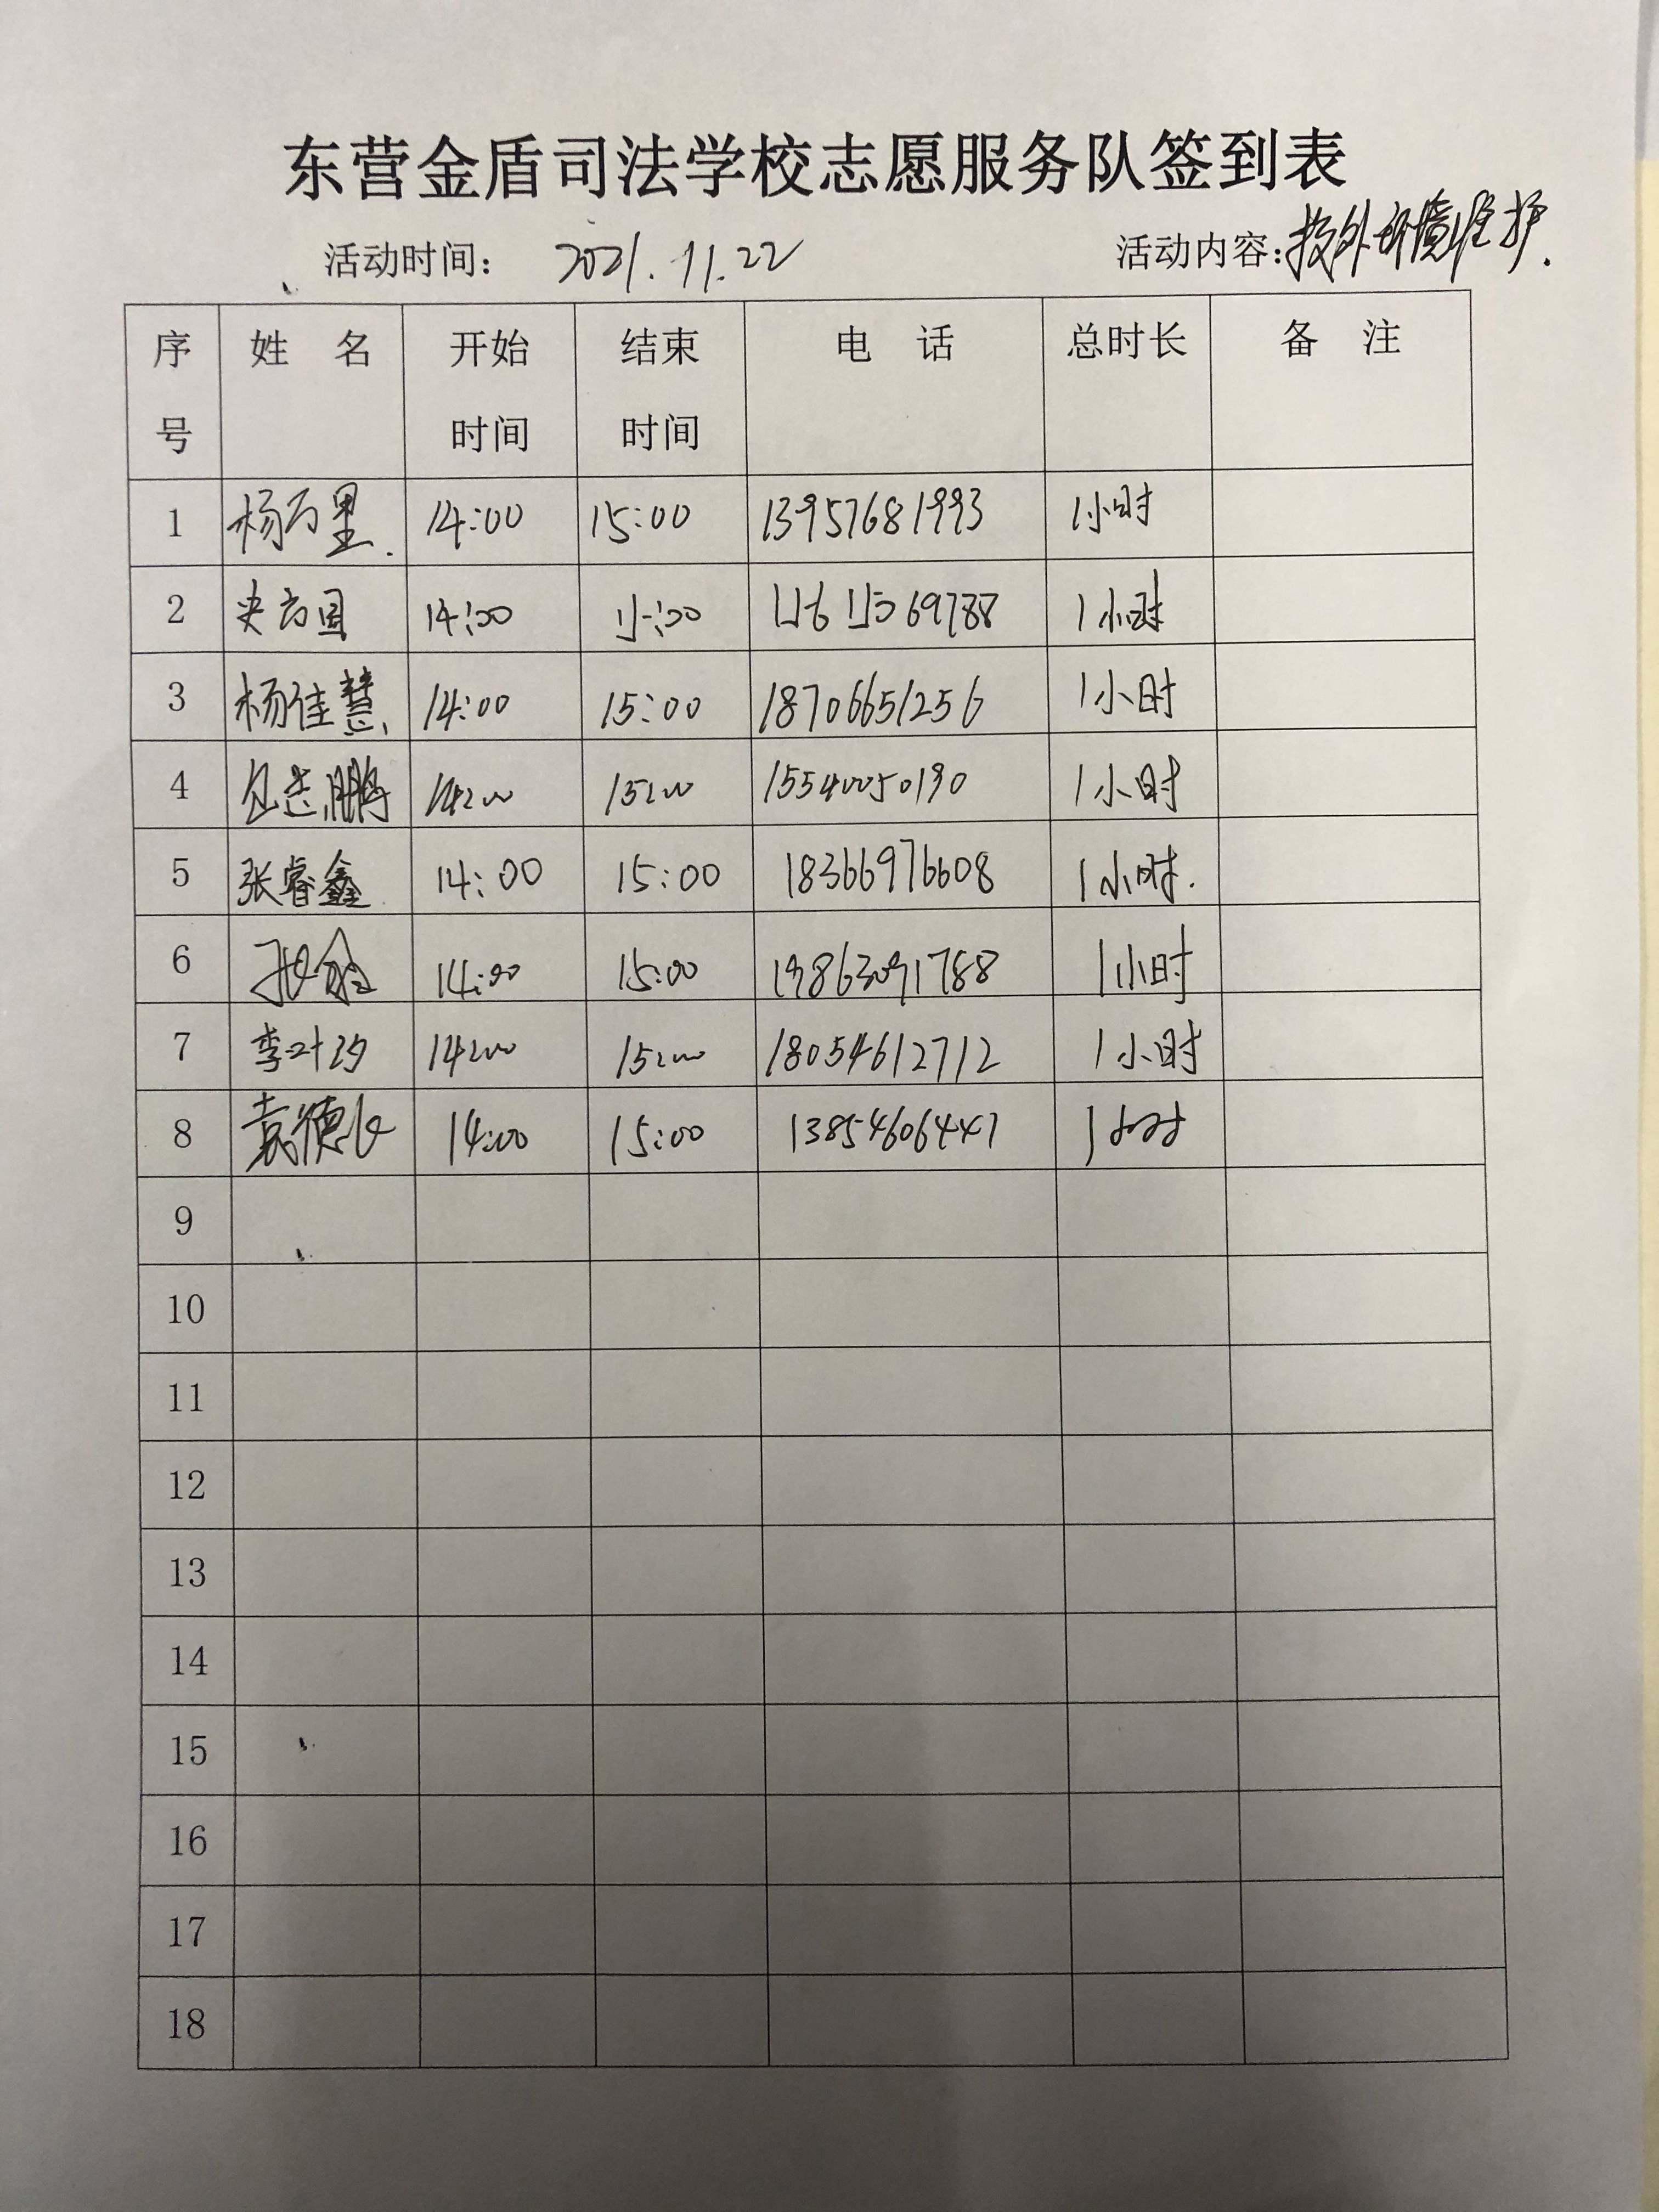 东营金盾司法学校志愿服务队签到表
活动时间： 2021.11.22 活动内容：校外环境维护.
序号 姓 名 开始时间 结束时间 电 话 总时长 备 注
1 杨万里. 14:00 15:00 13957681993 1小时
2 14:00 15:00 69788 1小时
3 杨佳慧 14:00 15:00 18706651256 1小时
4 14:00 15:00 15540050190 1小时
5 张睿鑫 14:00 15:00 18366976608 1小时.
6 14:00 15:00 19863091788 1小时
7 李叶汐 14:00 15:00 18054612712 1小时
8 袁德 14:00 15:00 13854606447 1小时
9
10
11
12
13
14
15
16
17
18